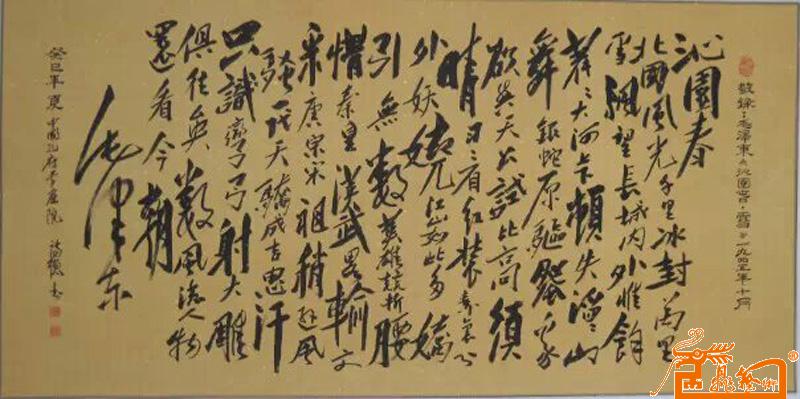 敬錄：毛澤東《沁園春·雪》一九四五年十月
沁園春
北國風光千里冰封萬里
雪飄望長城內外惟餘
莽々大河上下頓失滔々山
舞銀蛇原驅蠟象
欲與天公試比高須
晴日看紅裝素裹分
外妖嬈江山如此多嬌
引無數英雄競折腰
惜秦皇漢武略輸文
采唐宗宋祖稍遜風
騷一代天驕成吉思汗
只識彎弓射大雕
俱往矣數風流人物
還看今朝
毛澤東
癸巳年夏中國孔府書畫院